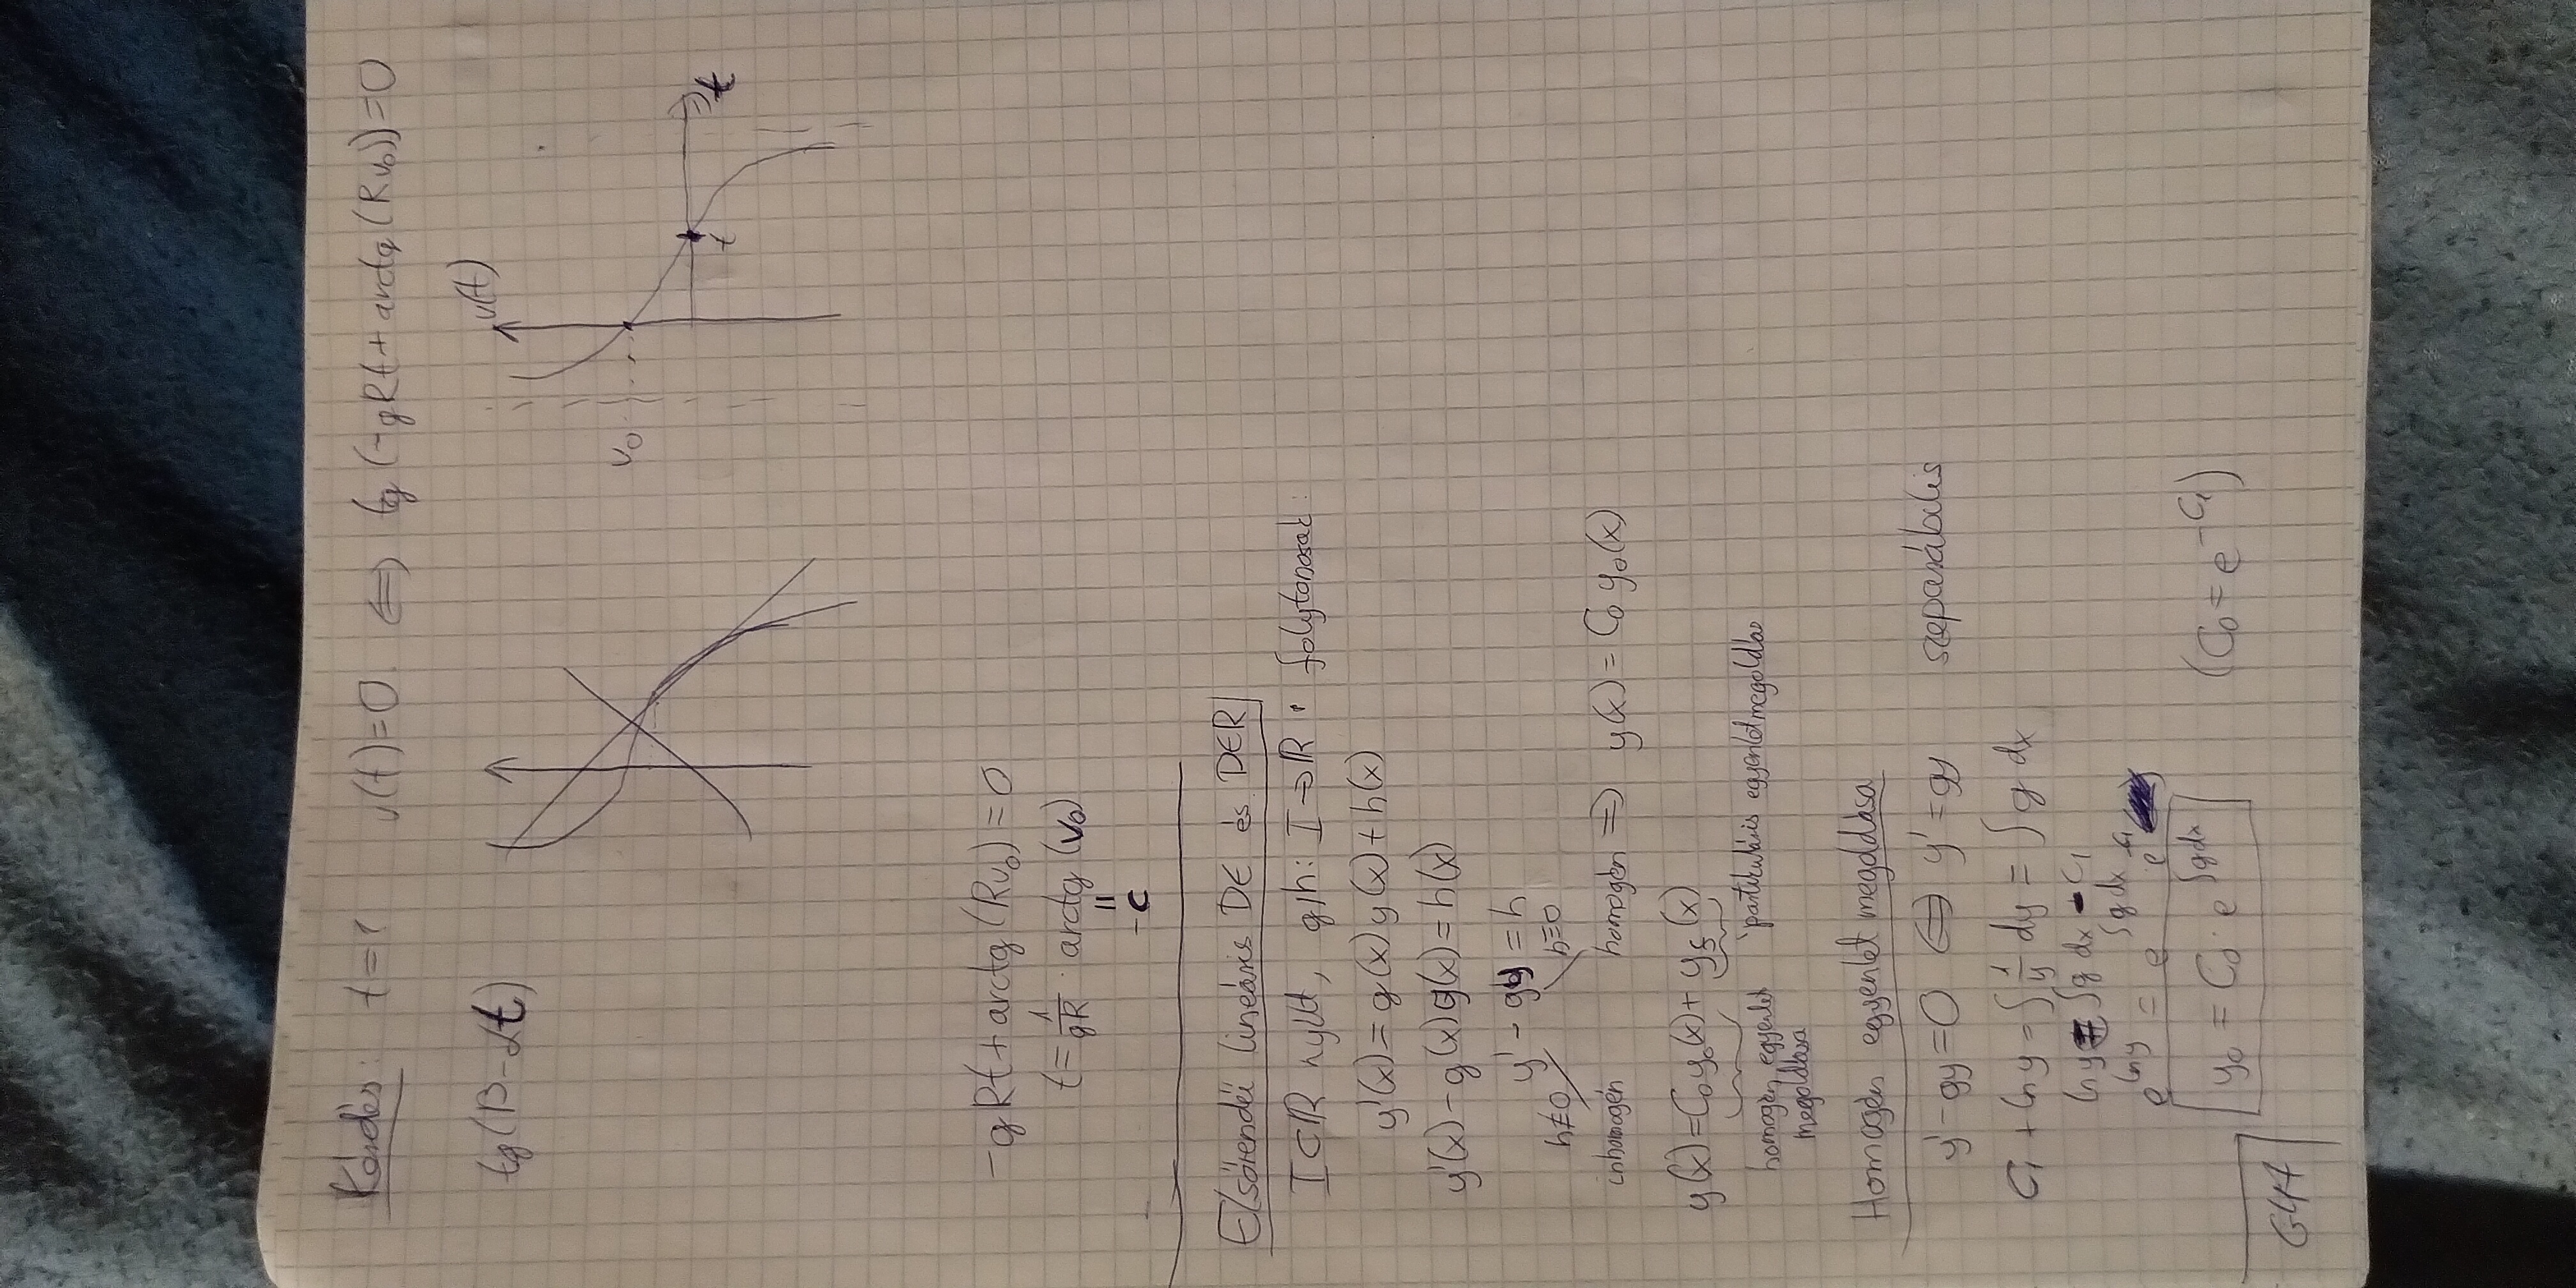 Kérdés: t=? v(t)=0. ⟺ tg(-gRt+arctg(Rv₀))=0
tg(β-αt)
v(t)
v₀
t
t
-gRt+arctg(Rv₀)=0
t=1/(gR)·arctg(v₀)
=
-c
Elsőrendű lineáris DE és DER
I⊂ℝ nyílt, g,h: I→ℝ folytonosak.
y'(x)=g(x)y(x)+h(x)
y'(x)-g(x)y(x)=h(x)
y'-gy=h
h≢0 h≡0
inhomogén homogén ⟹ y(x)=C₀y₀(x)
y(x)=C₀y₀(x)+ (x)
homogén egyenlet partikuláris egyenlet megoldás
megoldása
Homogén egyenlet megoldása
y'-gy=0 ⟺ y'=gy szeparábilis
C₁+ln y=∫1/y dy=∫g dx
ln y=∫g dx-C₁
e^(ln y)=e^(∫g dx) e^(-C₁)
y₀=C₀·e^(∫g dx) (C₀=e^(-C₁))